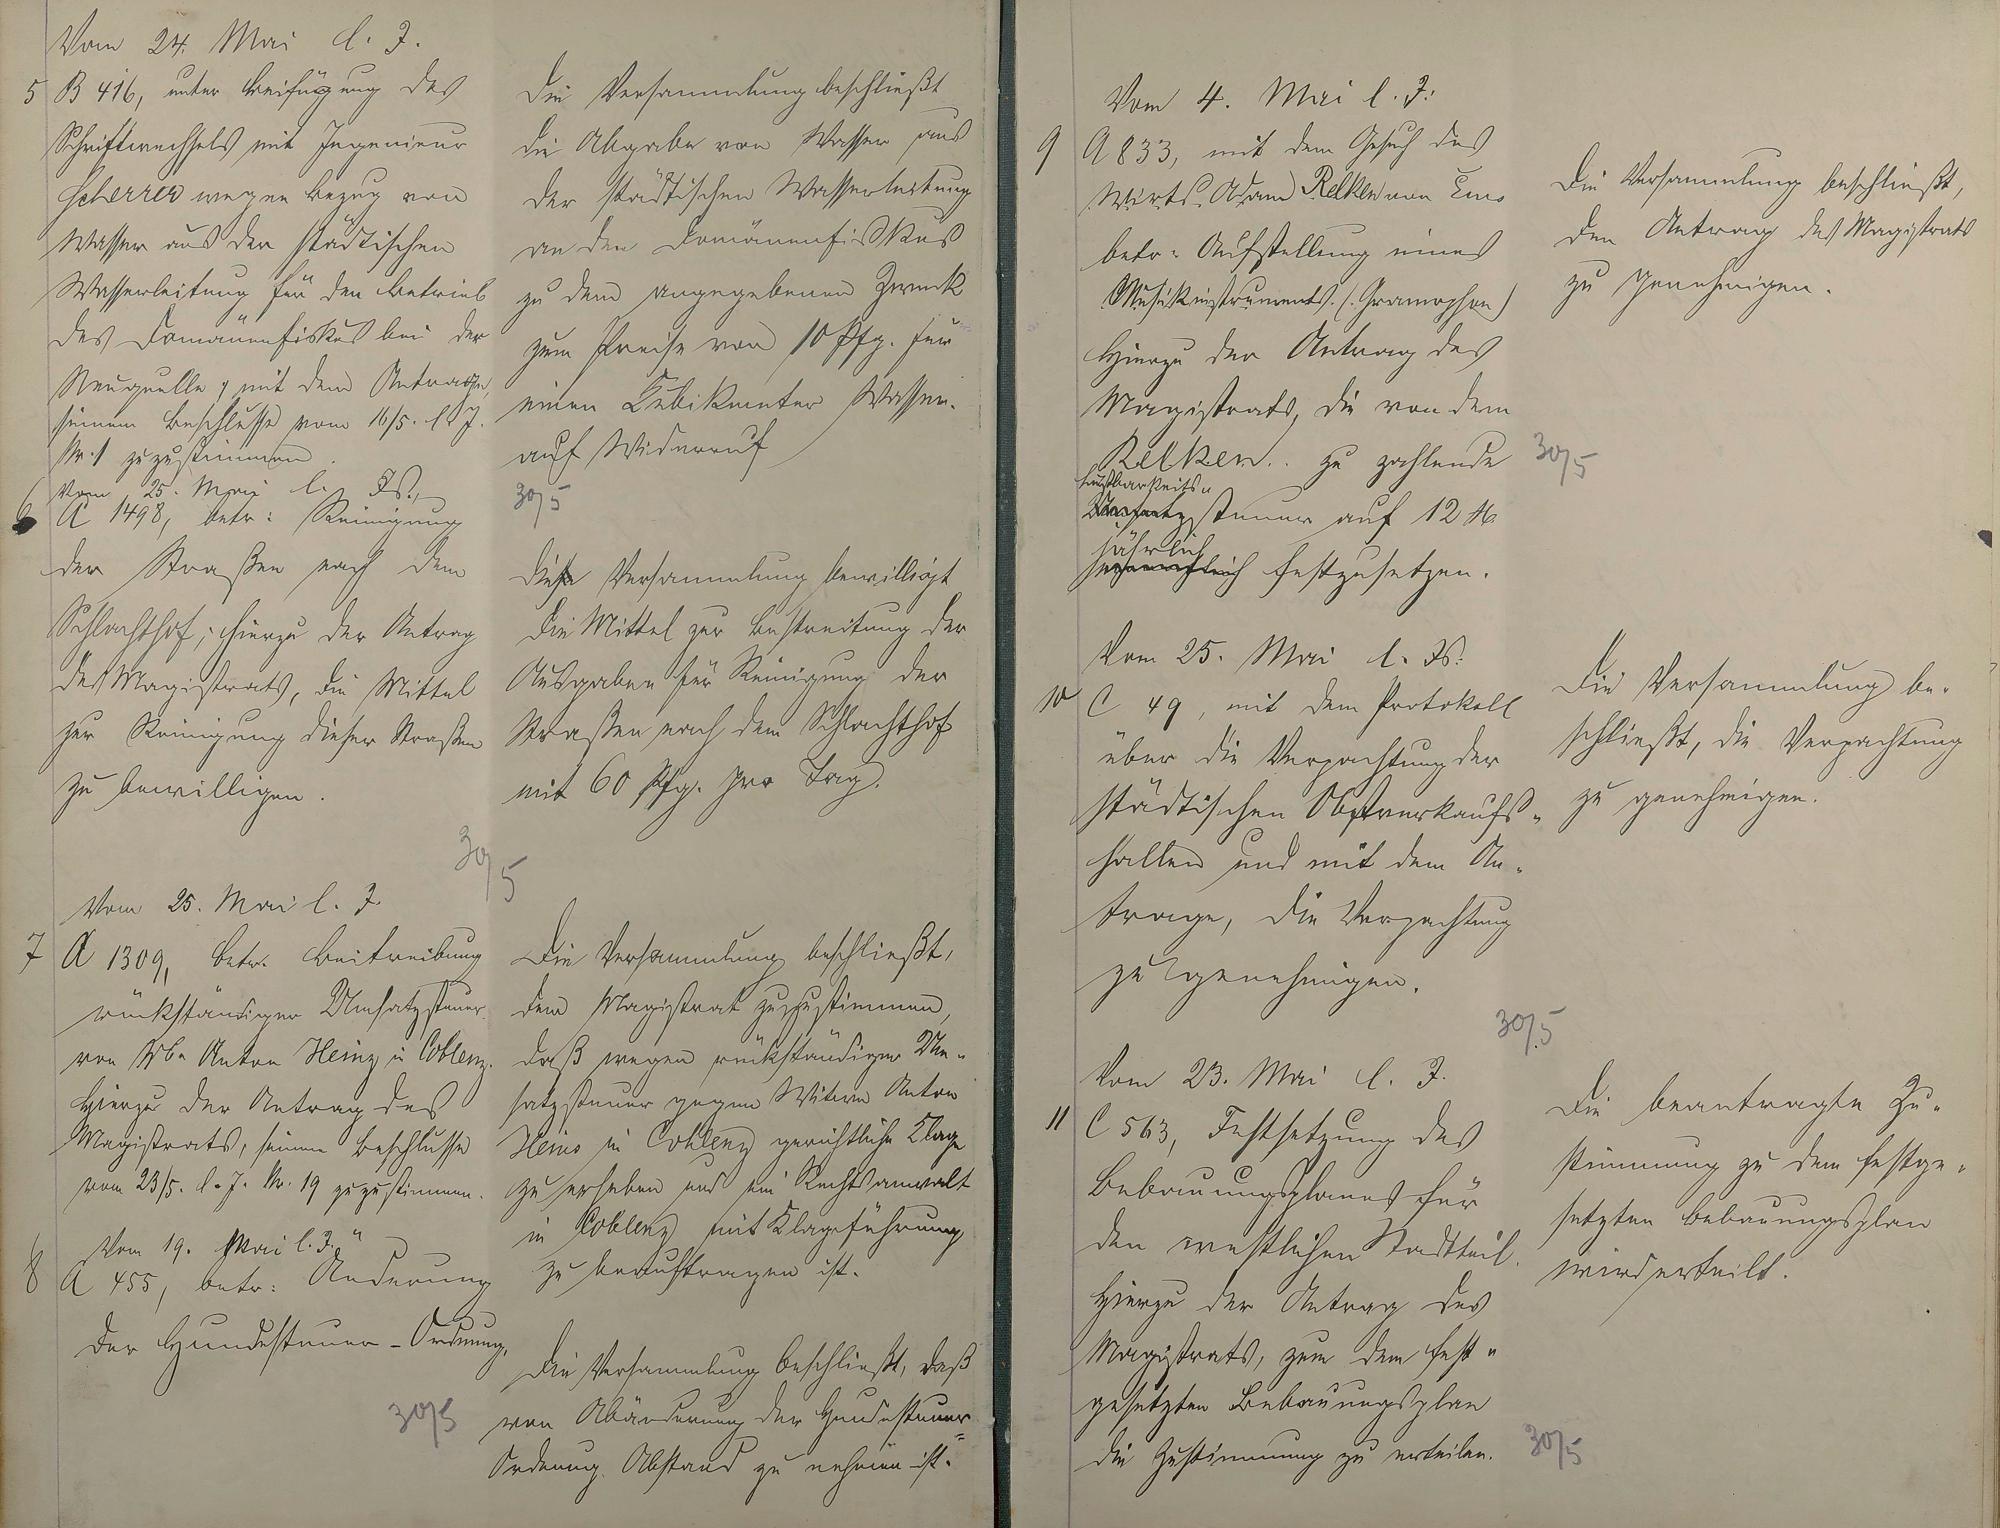 Vom 24. Mai l. J.
5 B 416, unter Beifügung des
Schriftwechsels mit Ingenieur
Scherrer wegen Bezug von
Wasser aus der städtischen
Wasserleitung für den Betrieb
des Domänenfiskus bei der
Neuquelle, mit dem Antrage,
seinem Beschlusse vom 16/5. l. J.
Nr. 1 zuzustimmen.
Die Versammlung beschließt
die Abgabe von Wasser aus
der städtischen Wasserleitung
an den Domänenfiskus
zu dem angegebenen Zweck
zum Preise von 10 Pfg. für
einen Kubikmeter Wasser.
auf Widerruf
30/5
Vom 25. Mai l. Js.,
6 A 1498, betr: Reinigung
der Straßen nach dem
Schlachthof; hierzu der Antrag
des Magistrats, die Mittel
zur Reinigung dieser Straßen
zu bewilligen.
Die Versammlung bewilligt
die Mittel zur Bestreitung der
Ausgaben für Reinigung der
Straßen nach dem Schlachthof
mit 60 Pfg. pro Tag.
30/5
Vom 25. Mai l. J.
7 A 1309, betr. Beitreibung
rückständiger Umsatzsteuer
von Wb. Anton Heinz in Coblenz.
Hierzu der Antrag des
Magistrats, seinem Beschlusse
vom 23/5. l. J. Nr. 19 zuzustimmen.
Die Versammlung beschließt,
dem Magistrat zuzustimmen,
daß wegen rückständiger Um-
satzsteuer gegen Witwe Anton
Heins in Coblenz gerichtliche Klage
zu erheben und ein Rechtsanwalt
in Coblenz mit Klageführung
zu beauftragen ist.
Vom 19. Mai l. J.
8 A 455, betr: Änderung
der Hundesteuer-Ordnung.
30/5
Die Versammlung beschließt, daß
von Abänderung der Hundesteuer-
Ordnung Abstand zu nehmen ist.
Vom 4. Mai l. J.
9 A 833, mit dem Gesuch des
Wirts Adam Relken von Ems
betr: Aufstellung eines
Musikinstruments. (Gramophon)
Hierzu der Antrag des
Magistrats, die von dem
Relken zu zahlende
Lustbarkeits-
steuer auf 12 M
jährlich
festzusetzen.
Die Versammlung beschließt,
den Antrag des Magistrats
zu genehmigen.
30/5
Vom 25. Mai l. Js.
10 C 49, mit dem Protokoll
über die Verpachtung der
städtischen Obstverkaufs-
hallen und mit dem An-
trage, die Verpachtung
zu genehmigen.
Die Versammlung be-
schließt, die Verpachtung
zu genehmigen.
30/5
Vom 23. Mai l. J.
11 C 563, Festsetzung des
Bebauungsplanes für
den westlichen Stadtteil.
Hierzu der Antrag des
Magistrats, zum dem fest-
gesetzten Bebauungsplan
die Zustimmung zu erteilen.
Die beantragte Zu-
stimmung zu dem festge-
setzten Bebauungsplan
wird erteilt.
30/5